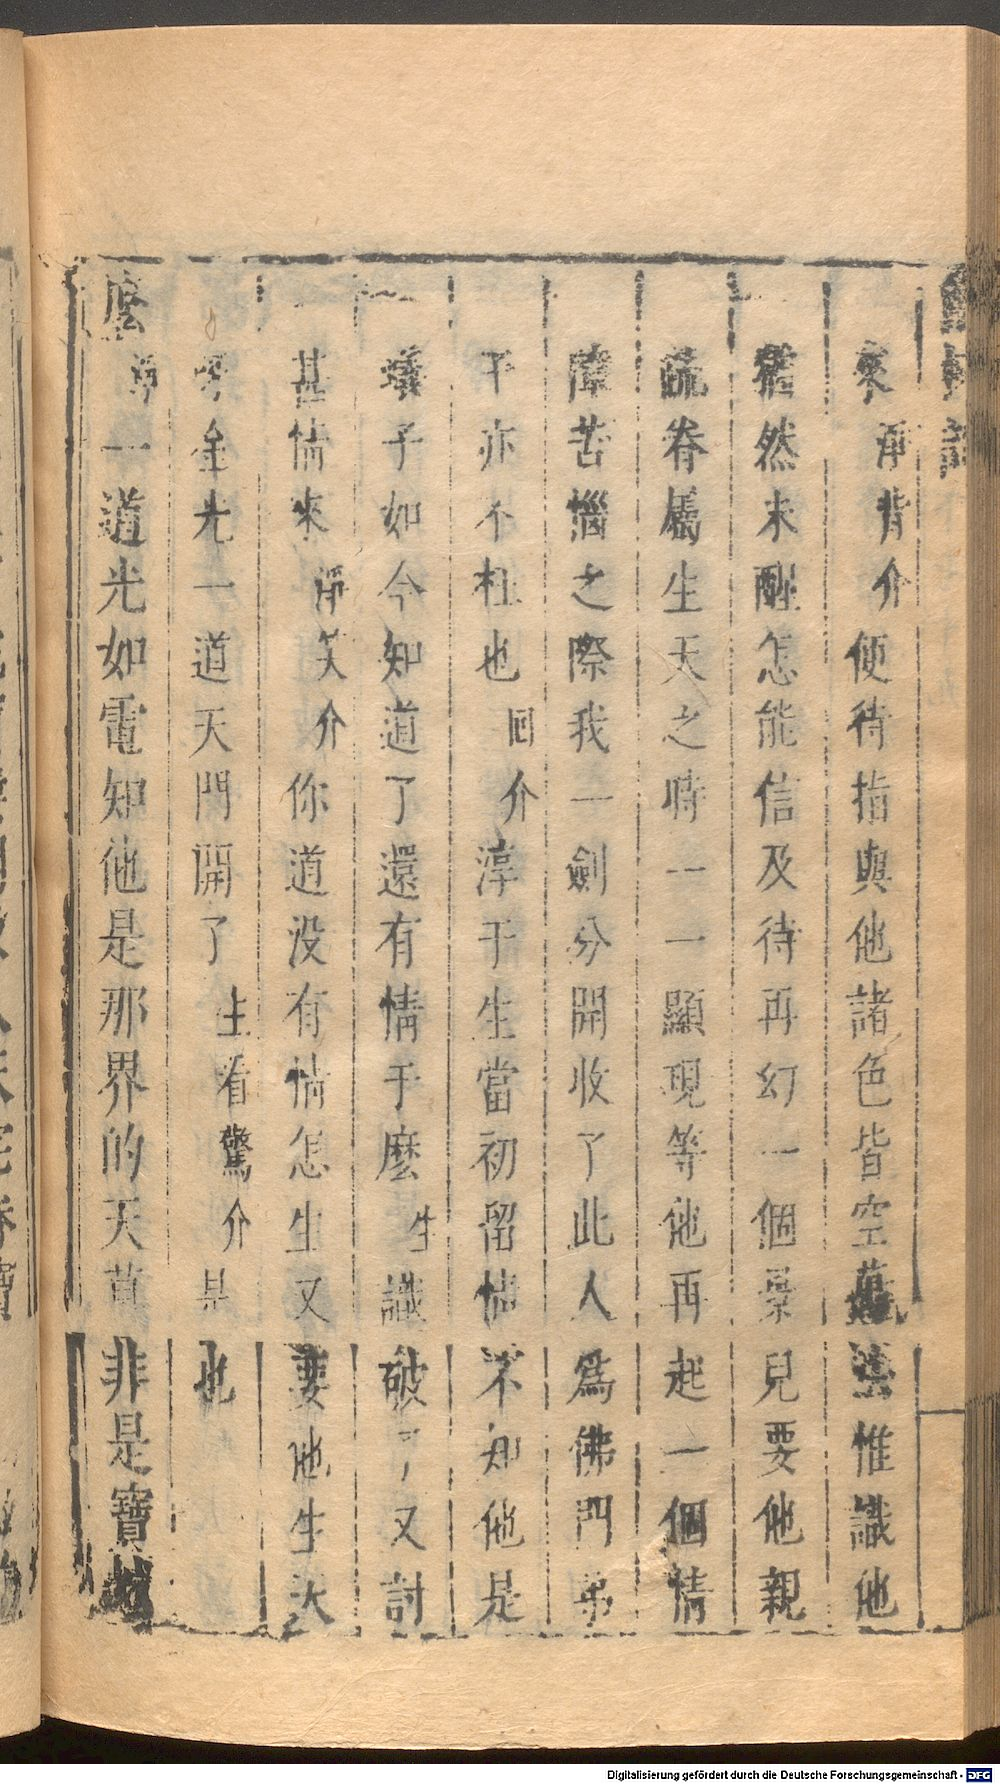 來淨背介便待指與他諸色皆空萬法惟識他
猶然未醒怎能信及待再幻一個景兒要他親
疏眷屬生天之時一一顯現等他再起一個情
障苦惱之際我一劍分開收了此人為佛門弟
子亦不枉也回介淳于生當初留情不知他是
蟻子如今知道了還有情于麼生識破了又討
甚情來淨笑介你道没有情怎生又要他生天
呀金光一道天門開了生看驚介是也
麼淨一道光如電知他是那界的天莫非是寶
Digitalisierung gefördert durch die Deutsche Forschungsgemeinschaft - DFG